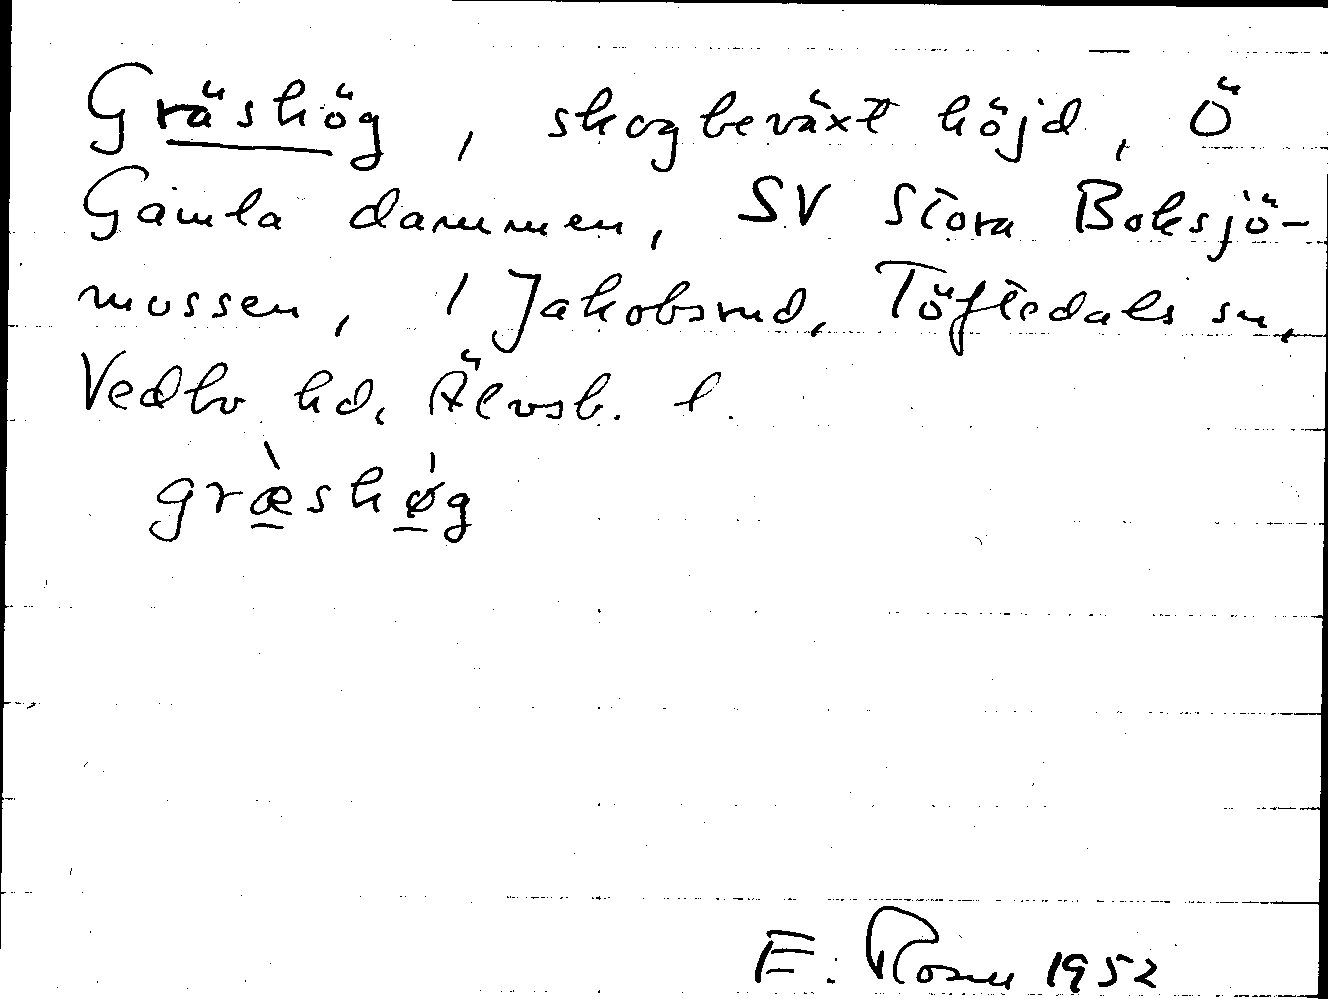 Gräshög, skogbeväxt höjd, Ö
Gamla dammen, SV Stora Boksjö-
mossen, 1 Jakobsrud, Töftedals sn,
Vedbo hd, Älvsb. l.
græshøg
E. Rosell 1952